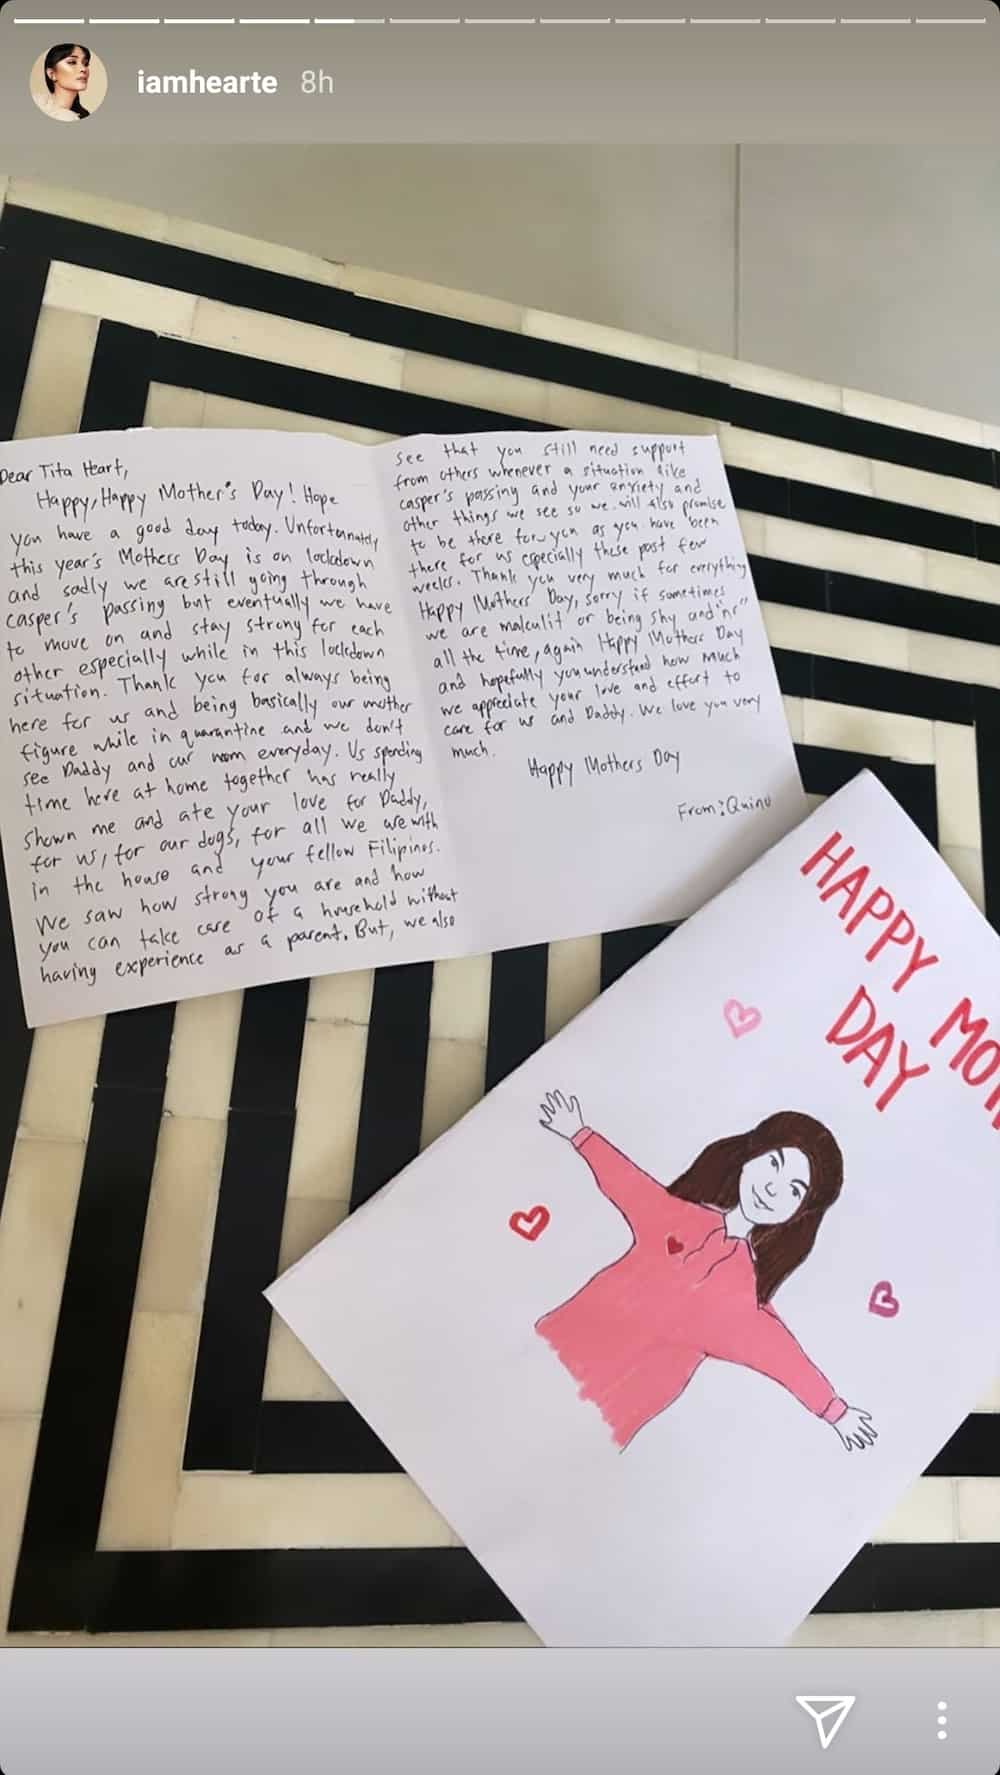 iamhearte 8h
Dear Tita Heart,
Happy, Happy Mother's Day! Hope
you have a good day today. Unfortunately
this year's Mothers Day is on lockdown
and sadly we are still going through
casper's passing but eventually we have
to move on and stay strong for each
other especially while in this lockdown
situation. Thank you for always being
here for us and being basically our mother
figure while in quarantine and we don't
see Daddy and our mom everyday. Us spending
time here at home together has really
shown me and ate your love for Daddy,
for us, for our dogs, for all we are with
in the house and your fellow Filipinos.
We saw how strong you are and how
you can take care of a household without
having experience as a parent. But, we also
see that you still need support
from others whenever a situation like
casper's passing and your anxiety and
other things we see so we will also promise
to be there for you as you have been
there for us especially these past few
weeks. Thank you very much for everything
Happy Mothers' Day, sorry if sometimes
we are makulit or being shy and "ns"
all the time, again Happy Mothers Day
and hopefully you understand how much
we appreciate your love and effort to
care for us and Daddy. We love you very
much.
Happy Mothers Day
From: Quino
HAPPY MOT
DAY